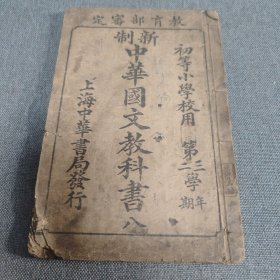 教育部審定
初等小學校用 第三二學年期
新制
中華國文教科書 八
上海中華書局發行